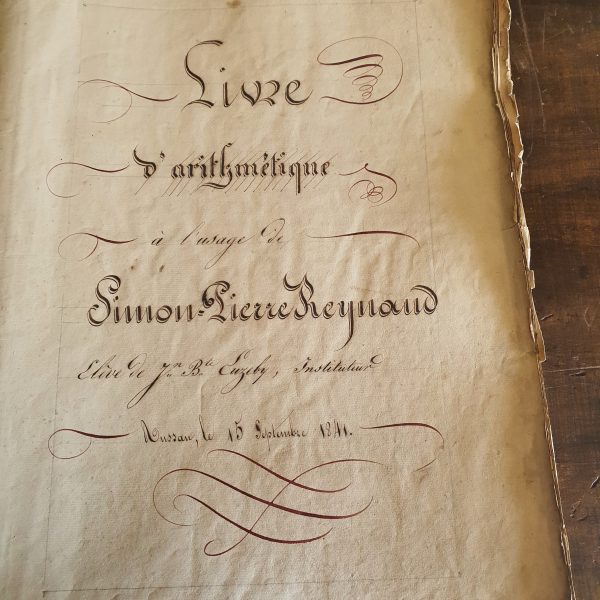 Livre
d'arithmétique
à l'usage de
Simon-Pierre Reynaud
Elève de Jn Bte Euzeby, Instituteur
le 15 Septembre 1841.